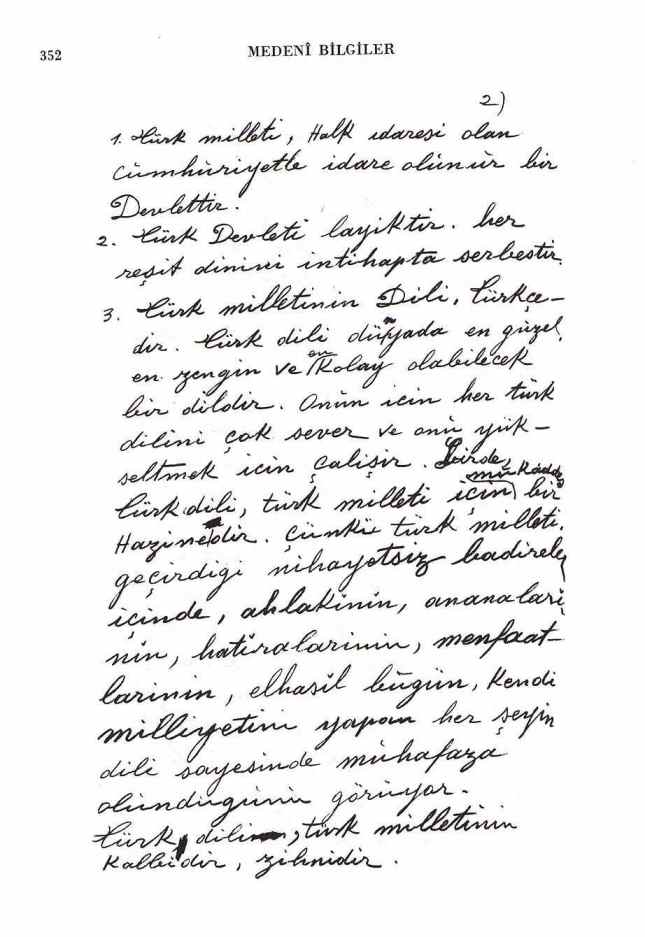 352
MEDENÎ BİLGİLER
2)
1. Türk milleti, Halk idaresi olan
Cümhüriyetle idare olünür bir
Devlettir.
2. Türk Devleti layiktir. her
reşit dinini intihapta serbestir.
3. Türk milletinin Dili, Türkçe-
dir. Türk dili dünyada en güzel,
en zengin ve en Kolay olabilecek
bir dildir. Onün icin her türk
dilini çok sever ve onü yük-
seltmek icin çalişir. Birde,
Türk dili, türk milleti için mükaddes bir
Hazinedir. Çünkü türk milleti,
geçirdigi nihayetsiz badireler
içinde, ahlakinin, ananalari
nin, hatiralarinin, menfaat-
larinin, elhasil bügün, Kendi
milliyetini yapan her şeyin
dili sayesinde mühafaza
olündügünü görüyor.
Türk dili, türk milletinin
Kalbidir, zihnidir.